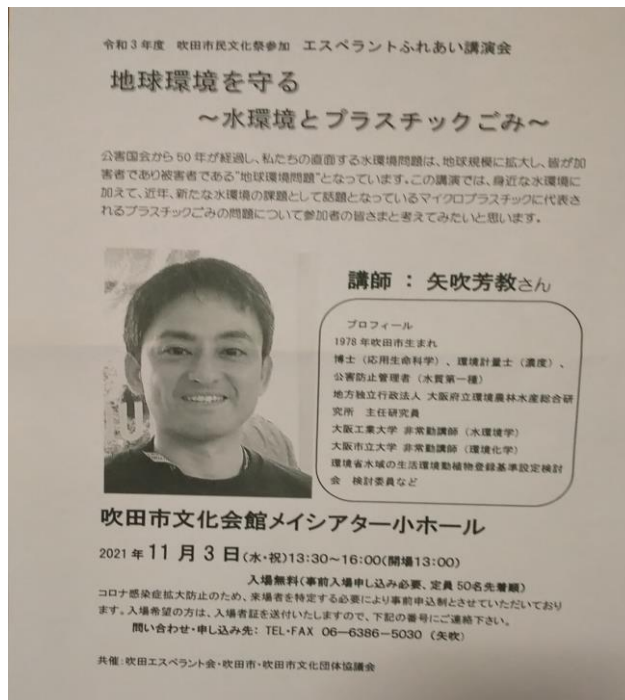 令和3年度　吹田市民文化祭参加　エスペラントふれあい講演会
地球環境を守る
～水環境とプラスチックごみ～
公害国会から50年が経過し、私たちの直面する水環境問題は、地球規模に拡大し、皆が加
害者であり被害者である"地球環境問題"となっています。この講演では、身近な水環境に
加えて、近年、新たな水環境の課題として話題となっているマイクロプラスチックに代表さ
れるプラスチックごみの問題について参加者の皆さまと考えてみたいと思います。
講師 ： 矢吹芳教さん
プロフィール
1978年吹田市生まれ
博士（応用生命科学）、環境計量士（濃度）、
公害防止管理者（水質第一種）
地方独立行政法人 大阪府立環境農林水産総合研
究所　主任研究員
大阪工業大学 非常勤講師（水環境学）
大阪市立大学 非常勤講師（環境化学）
環境省水域の生活環境動植物登録基準設定検討
会　検討委員など
吹田市文化会館メイシアター小ホール
2021年11月3日(水・祝)13:30～16:00(開場13:00)
入場無料(事前入場申し込み必要、定員50名先着順)
コロナ感染症拡大防止のため、来場者を特定する必要により事前申込制とさせていただいており
ます。入場希望の方は、入場者証を送付いたしますので、下記の番号にご連絡下さい。
問い合わせ・申し込み先： TEL・FAX 06―6386－5030 （矢吹）
共催：吹田エスペラント会・吹田市・吹田市文化団体協議会